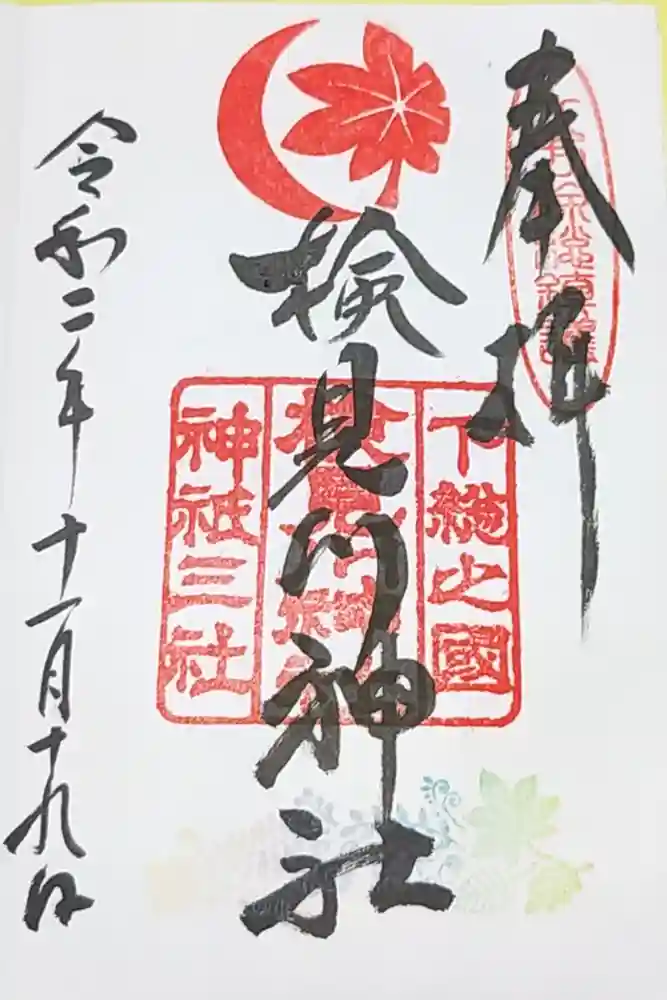 奉拝
下総之國
検見川神社
神祇三社
令和二年十一月十九日